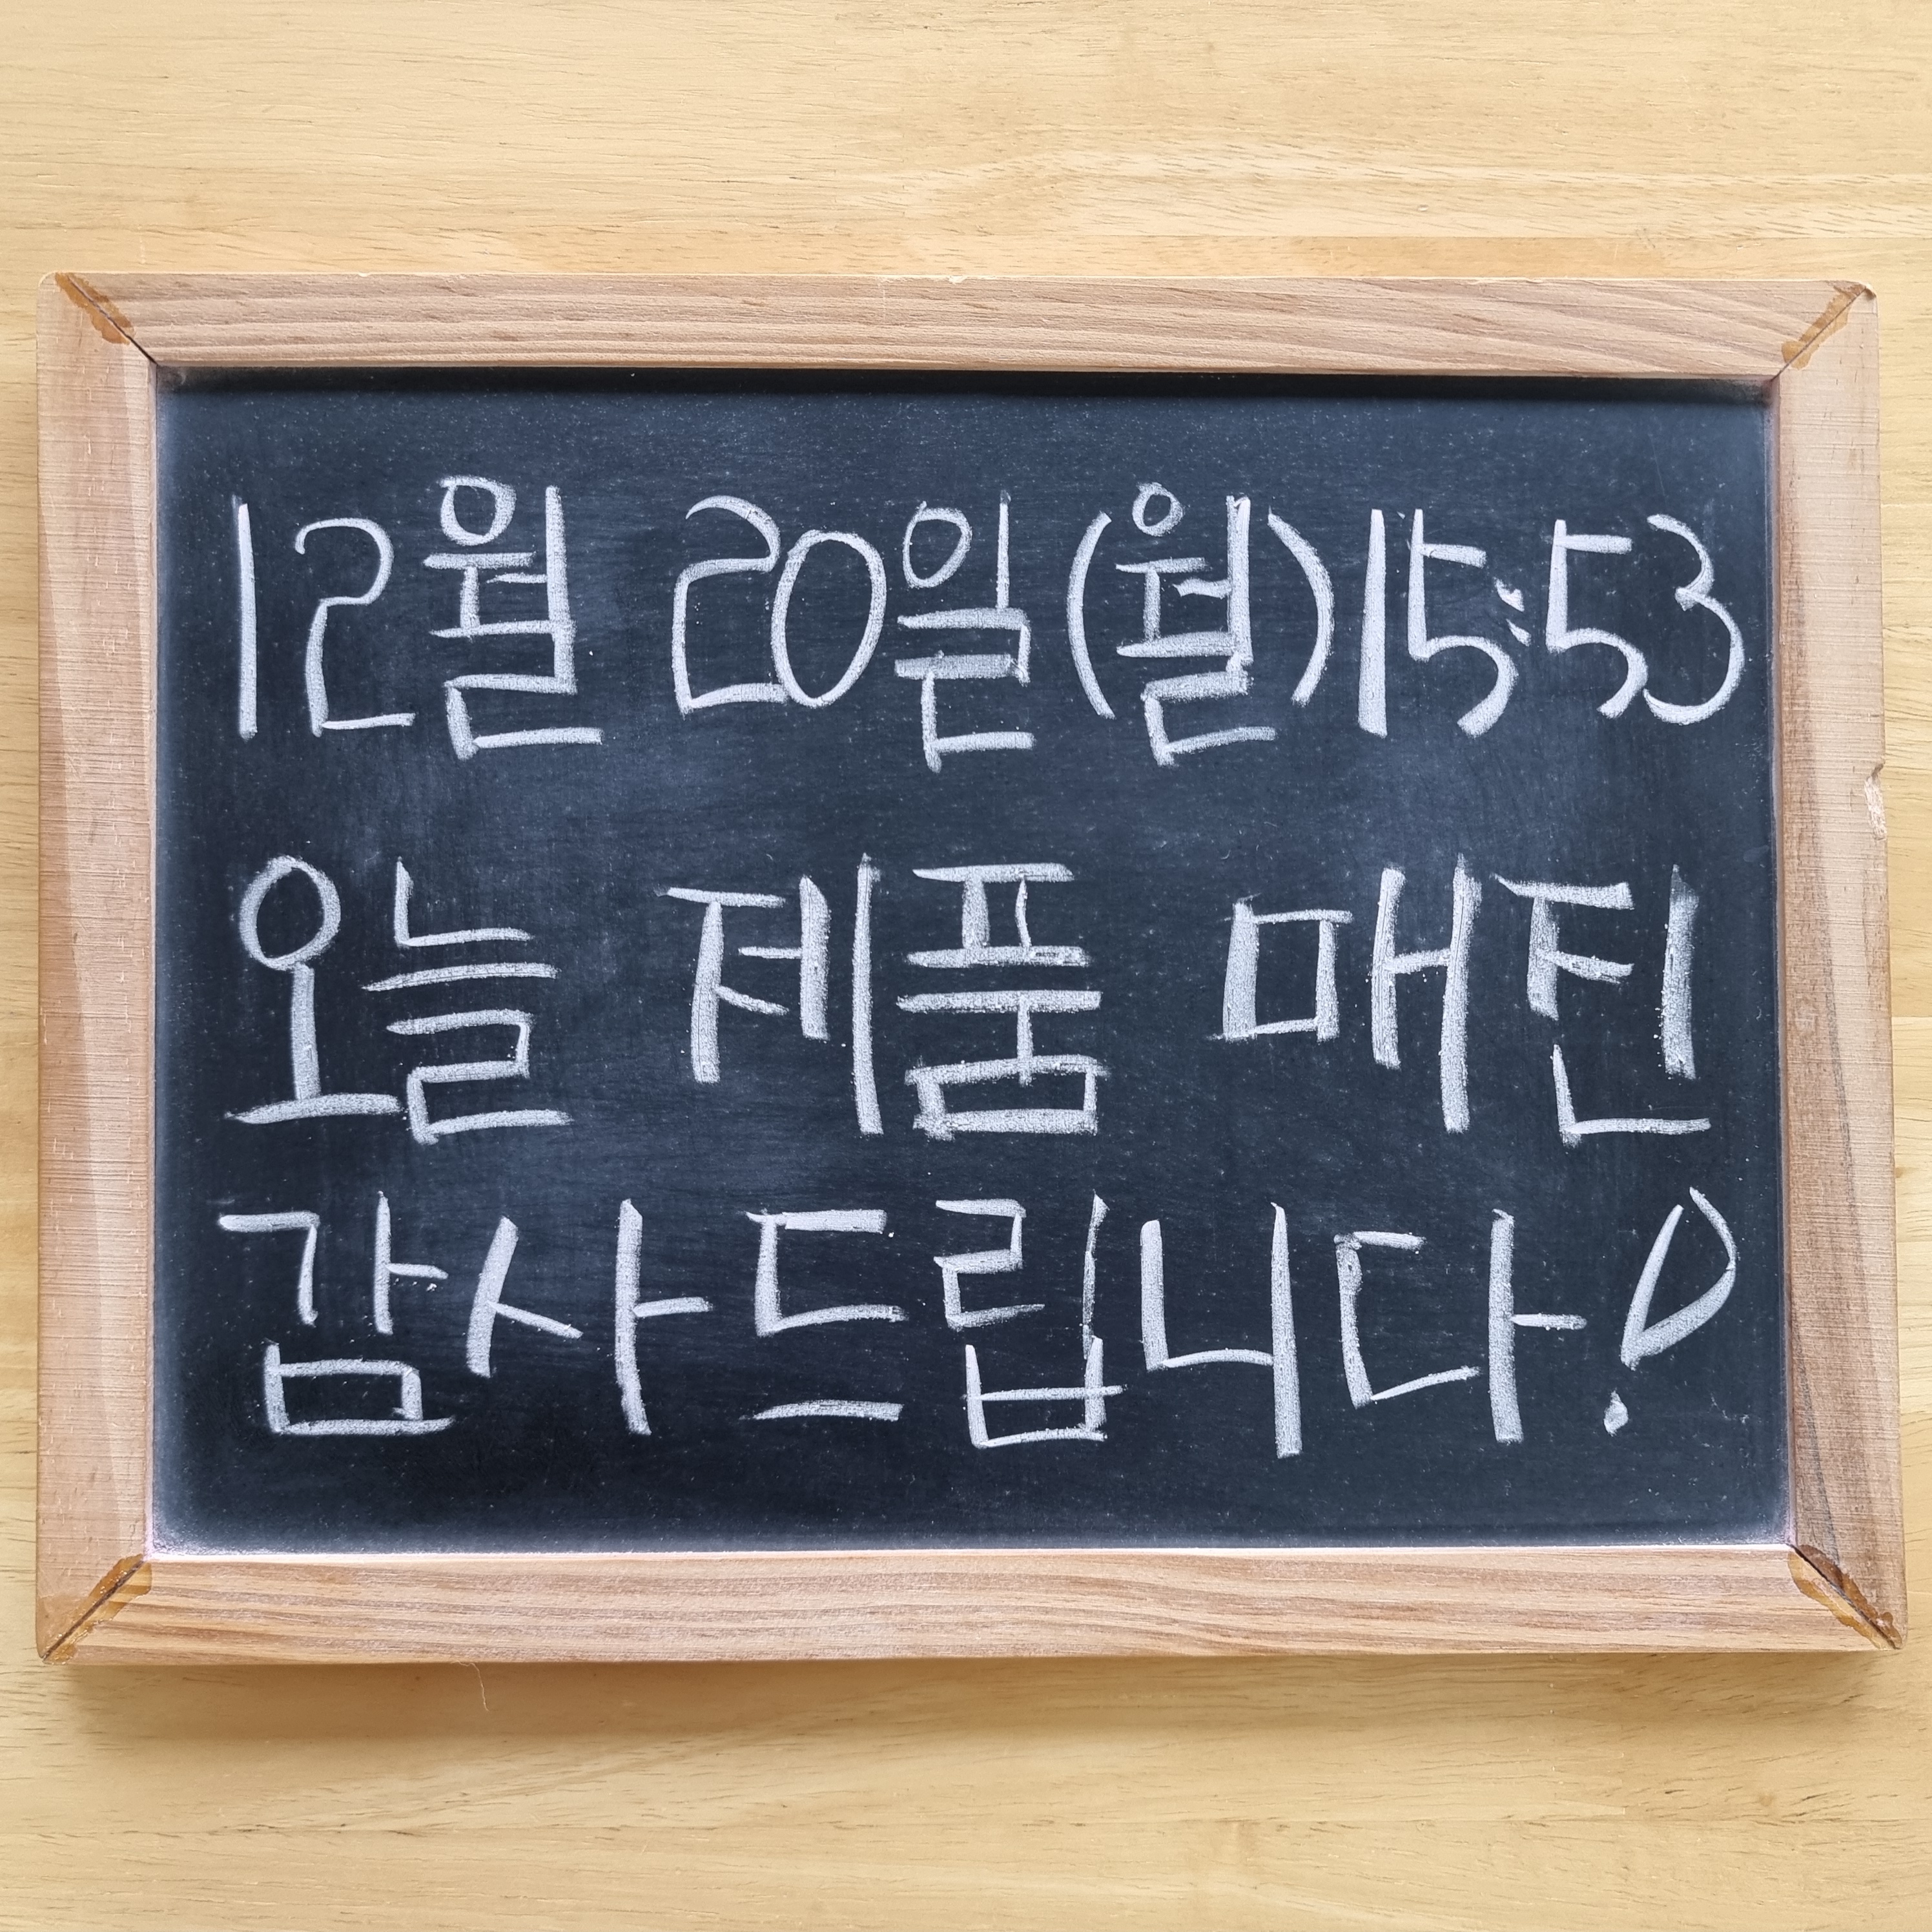 12월 20일(월)15:53
오늘 제품 매진
감사드립니다!